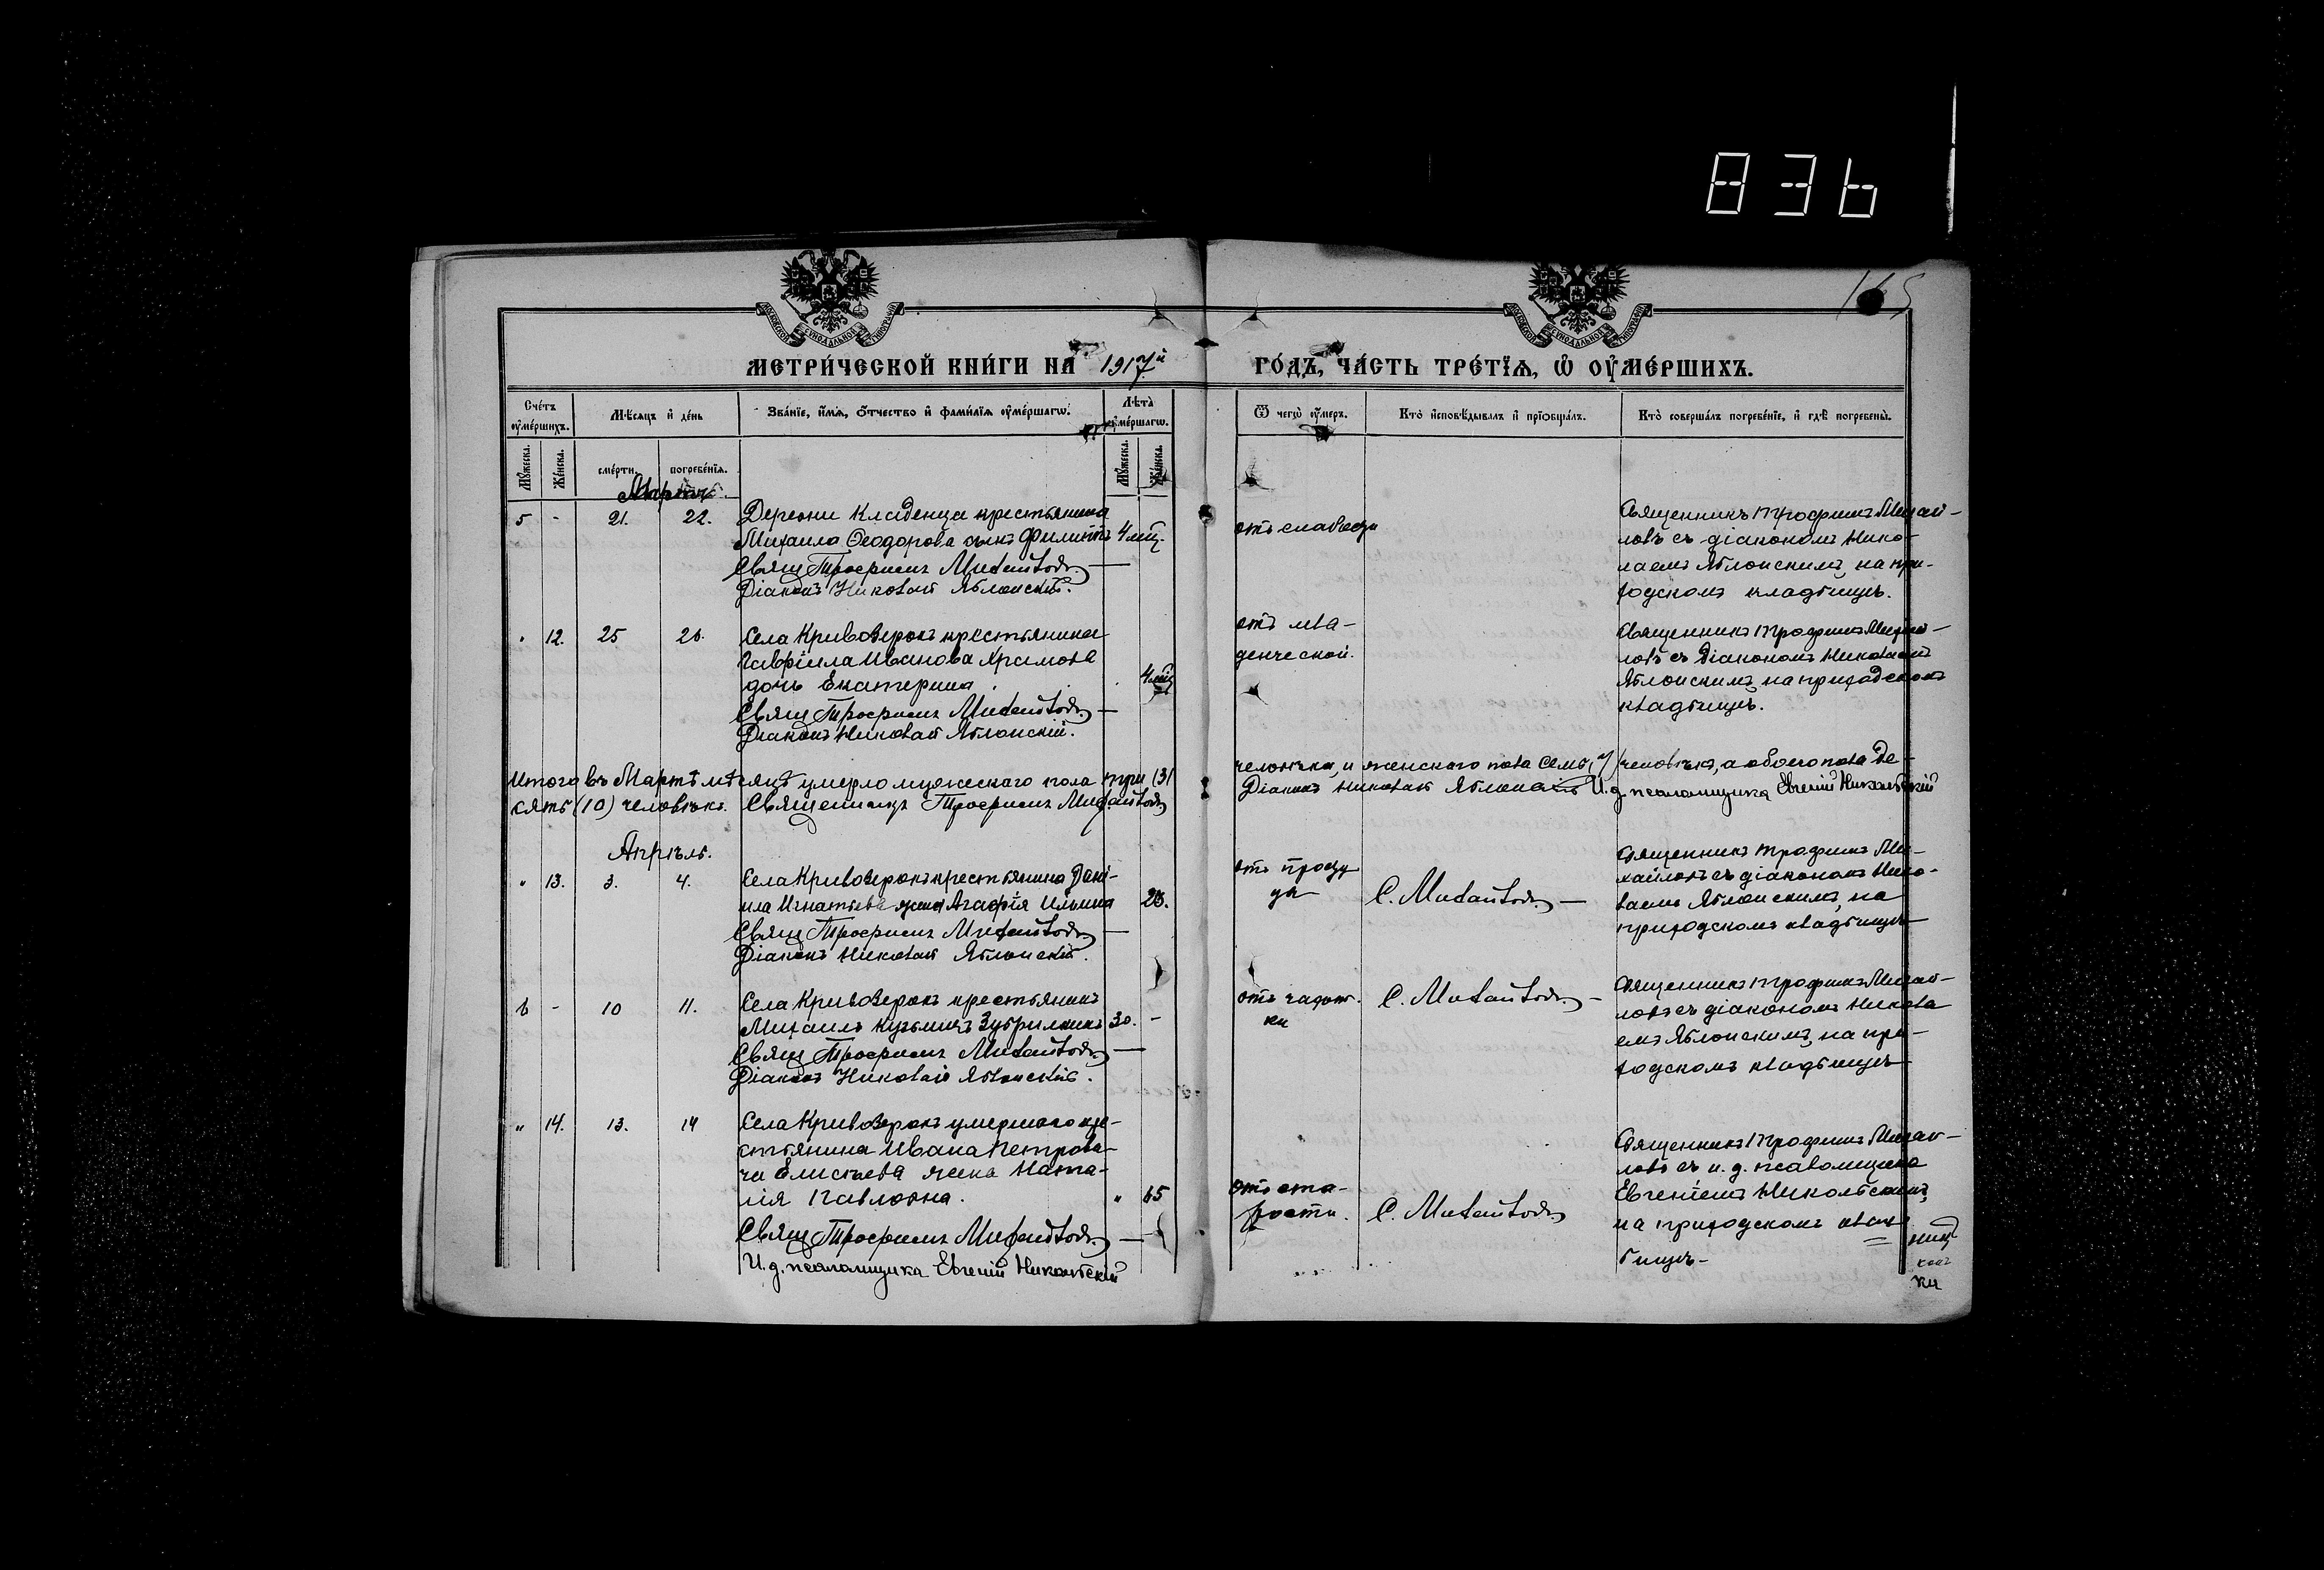 836
165
МОСКОВСКОЙ СѴНОДАЛЬНОЙ ТИПОГРАФІИ
МОСКОВСКОЙ СѴНОДАЛЬНОЙ ТИПОГРАФІИ
МЕТРИ́ЧЕСКОЙ КНИ́ГИ НА 1917й
ГО́ДЪ, ЧА́СТЬ ТРЕ́ТЇѦ, Ѽ ОУ҆МЕ́РШИХЪ.
Сче́тъ оу҆ме́ршихъ.
Мѣ́сяцъ и҆ де́нь
Зва́нїе, и҆́мѧ, ѻ҆́тчество и҆ фами́лїѧ оу҆ме́ршагѡ.
Лѣ́та оу҆ме́ршагѡ.
Ѿ чегѡ̀ оу҆́меръ.
Кто̀ и҆сповѣ́дывалъ и҆ прїѡбща́лъ.
Кто̀ соверша́лъ погребе́нїе, и҆ гдѣ̀ погребены̀.
Му́жеска.
Же́нска.
сме́рти.
погребе́нїѧ.
Му́жеска.
Же́нска.
Мартъ.
5 - 21. 22. Деревни Кладенца крестьянина
Михаила Ѳеодорова сынъ Филиппъ 4 мѣс.
Свящ Трофимъ Михайловъ
Діаконъ Николай Яблонскій.
отъ слабости
Священникъ Трофимъ Михай-
ловъ съ діакономъ Нико-
лаемъ Яблонскимъ, на при-
ходскомъ кладбищѣ.
" 12. 25 26. Села Кривозерокъ крестьянина
Гавріила Иванова Храмова
дочь Екатерина. 4 мѣс
Свящ Трофимъ Михайловъ
Діаконъ Николай Яблонскій.
отъ мла-
денческой.
Священникъ Трофимъ Михай-
ловъ съ діакономъ Николаемъ
Яблонскимъ, на приходскомъ
кладбищѣ.
Итого въ Мартѣ мѣсяцѣ умерло мужескаго пола три (3)
человѣка, и женскаго пола семь (7) человѣкъ, а обоего пола де-
сять (10) человѣкъ. Священникъ Трофимъ Михайловъ
Діаконъ Николай Яблонскій И. д. псаломщика Евгеній Никольскій
Апрѣль.
" 13. 3. 4. Села Кривозерокъ крестьянина Дані-
ила Игнатьева жена Агафія Ильина 28.
Свящ Трофимъ Михайловъ
Діаконъ Николай Яблонскій.
отъ просту
ды
С. Михайловъ
Священникъ Трофимъ Ми-
хайловъ съ діакономъ Нико-
лаемъ Яблонскимъ, на
приходскомъ кладбищѣ
6 - 10 11. Села Кривозерокъ крестьянинъ
Михаилъ Кузьминъ Зубрилкинъ 30. -
Свящ Трофимъ Михайловъ
Діаконъ Николай Яблонскій.
отъ чахот.
ки
С. Михайловъ
Священникъ Трофимъ Михай-
ловъ съ діакономъ Никола
емъ Яблонскимъ, на при-
ходскомъ кладбищѣ
" 14. 13. 14 Села Кривозерокъ умершаго кре-
стьянина Ивана Петрова-
ча Елисѣева жена Ната-
лія Павловна. " 65
Свящ Трофимъ Михайловъ
И. д. псаломщика Евгеній Никольскій
отъ ста-
рости.
С. Михайловъ
Священникъ Трофимъ Михай-
ловъ съ и. д. псаломщика
Евгеніемъ Никольскимъ,
на приходскомъ клад
бищѣ-